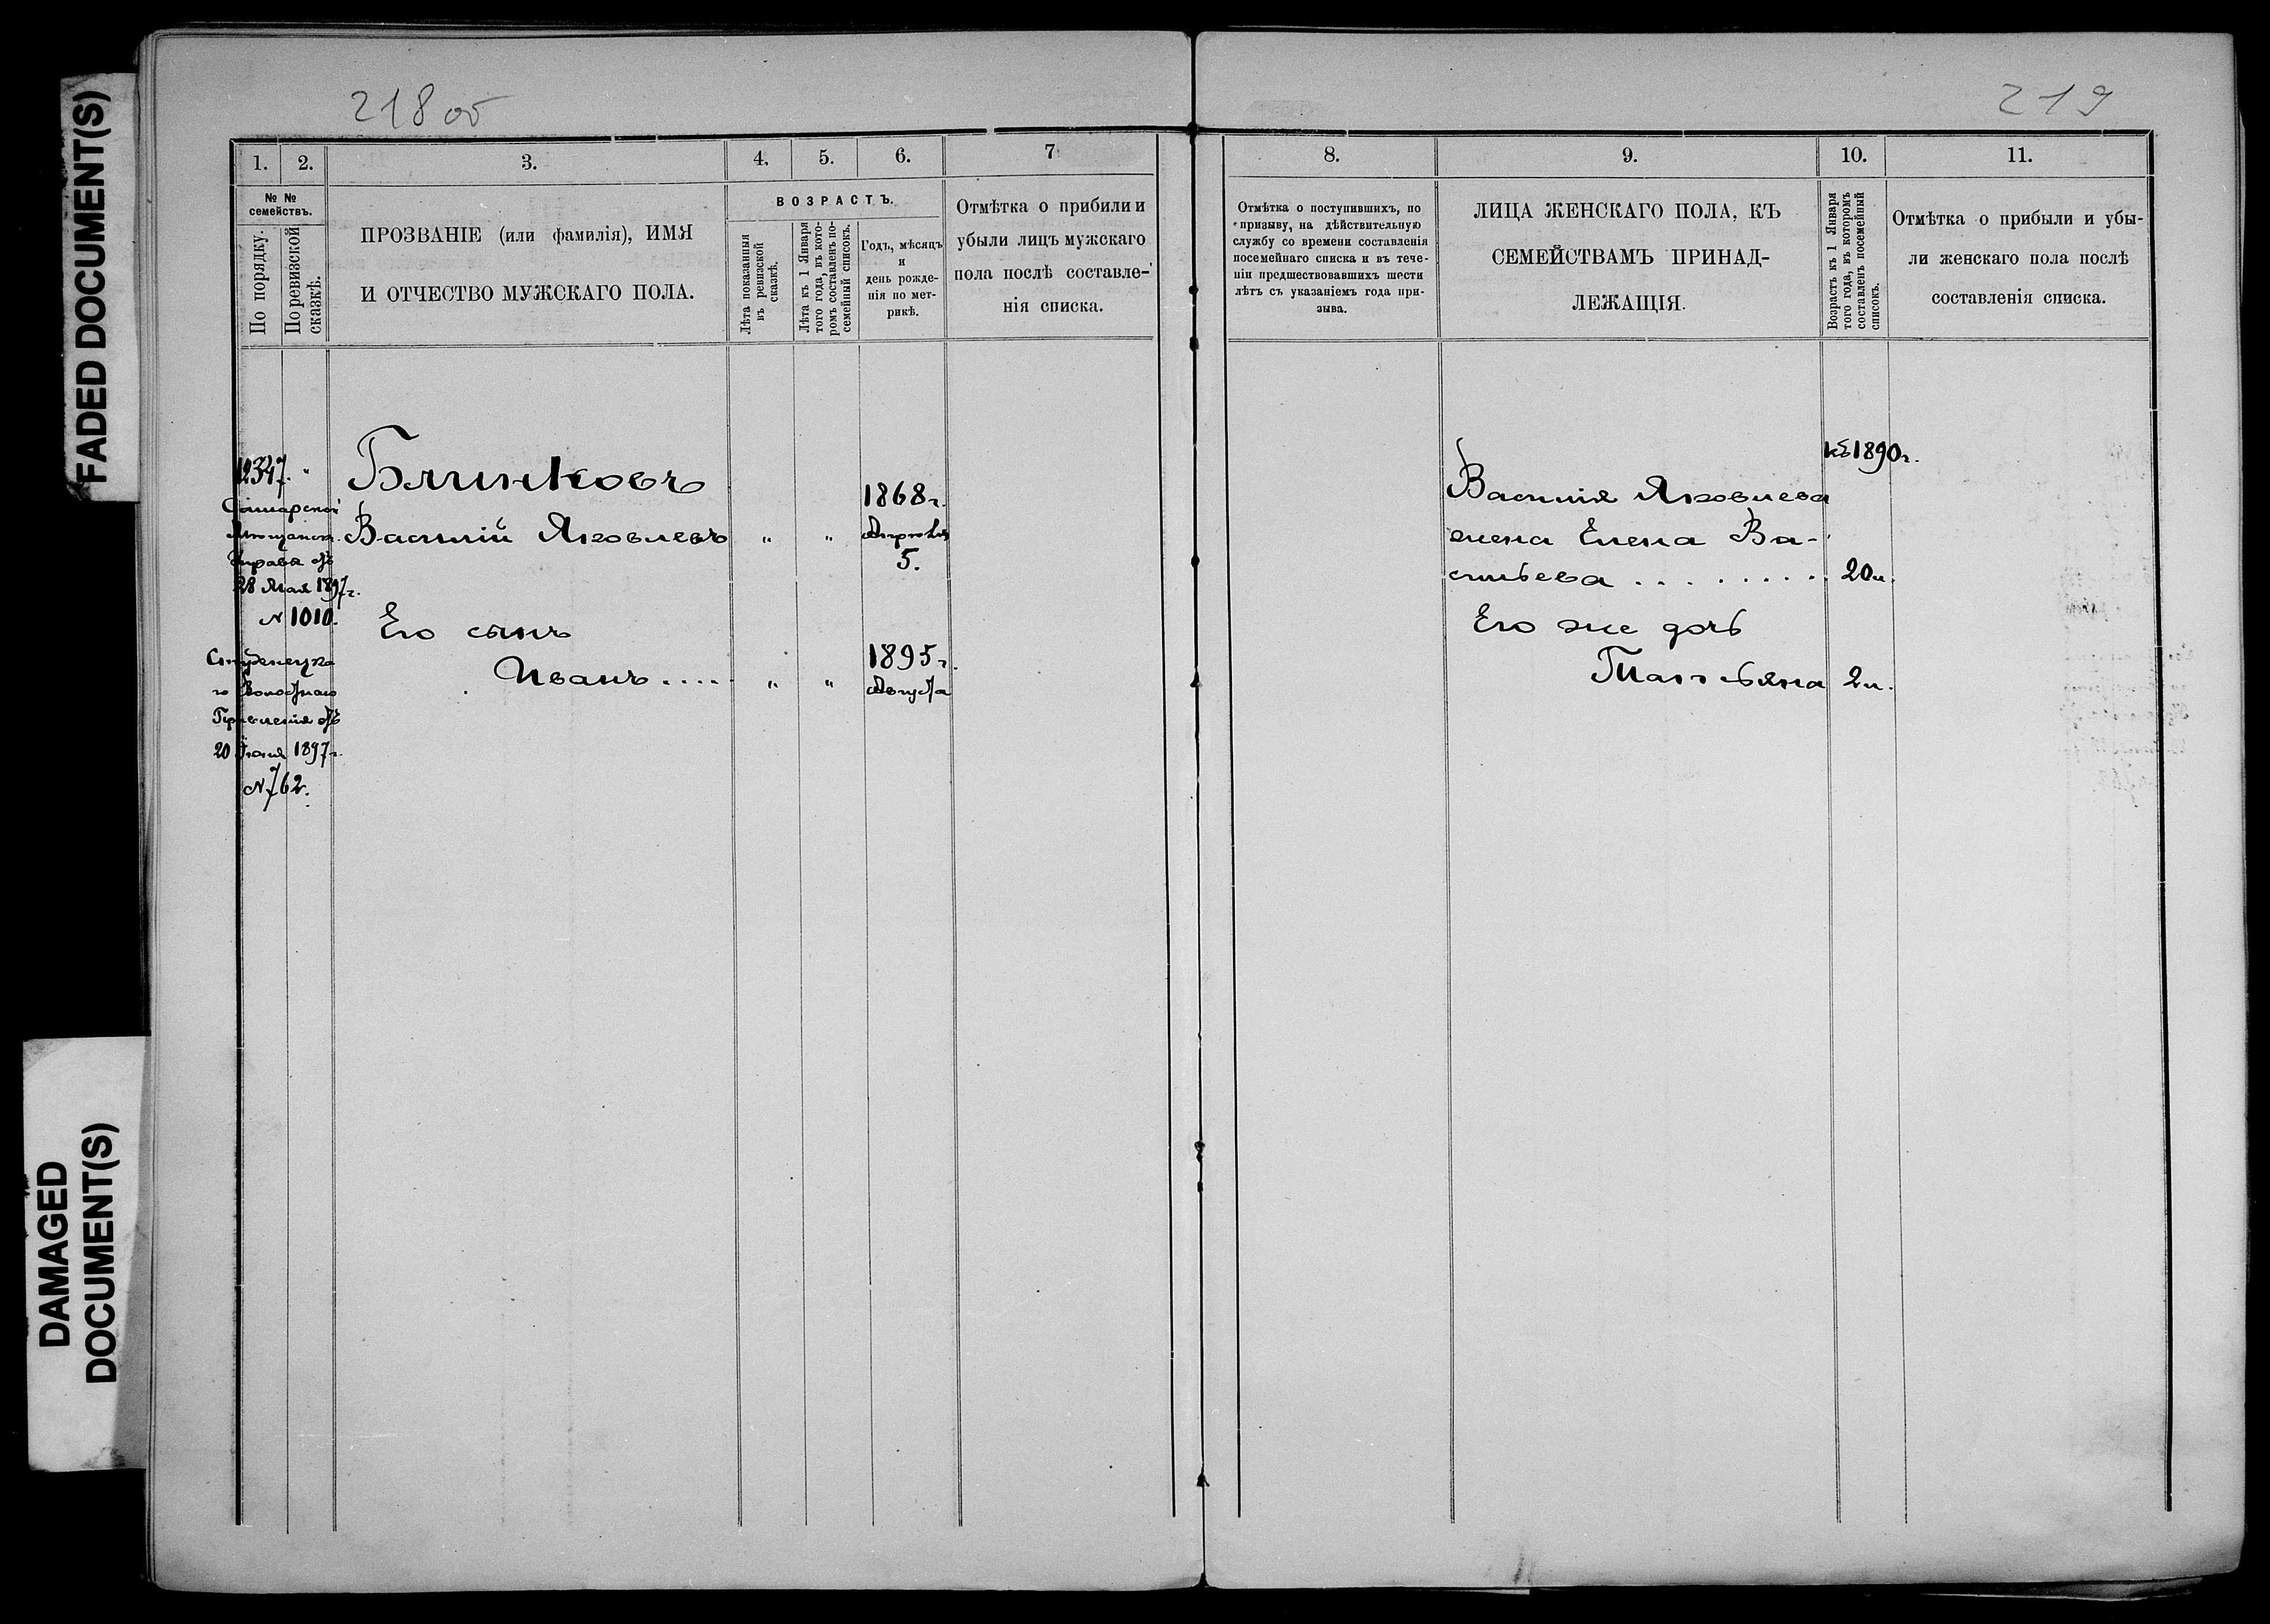 FADED DOCUMENT(S)
DAMAGED
DOCUMENT(S)
218 об
1. 2. 3. 4. 5. 6. 7
№ №
семействъ.
По порядку.
По ревизской
сказкѣ.
ПРОЗВАНІЕ (или фамилія), ИМЯ
И ОТЧЕСТВО МУЖСКАГО ПОЛА.
ВОЗРАСТЪ.
Лѣта показанныя
въ ревизской
сказкѣ.
Лѣта къ 1 Января
того года, въ кото-
ромъ составленъ по-
семейный списокъ.
Годъ, мѣсяцъ
и
день рожде-
нія по мет-
рикѣ.
Отмѣтка о прибыли и
убыли лицъ мужскаго
пола послѣ составле-
нія списка.
12347. "
Самарской
Мѣщанск.
Управы отъ
28 Мая 1897 г.
№ 1010.
Студенецка
го Волостнаго
Правленія отъ
20 Іюня 1897 г.
№ 762.
Блинковъ
Василій Яковлевъ " "
1868 г.
Апрѣля
5.
Его сынъ
Иванъ .... " "
1895 г.
Августа
219
8. 9. 10. 11.
Отмѣтка о поступившихъ, по
призыву, на дѣйствительную
службу со времени составленія
посемейнаго списка и въ тече-
ніи предшествовавшихъ шести
лѣтъ съ указаніемъ года при-
зыва.
ЛИЦА ЖЕНСКАГО ПОЛА, КЪ
СЕМЕЙСТВАМЪ ПРИНАД-
ЛЕЖАЩІЯ.
Возрастъ къ 1 Января
того года, въ которомъ
составленъ посемейный
списокъ.
Отмѣтка о прибыли и убы-
ли женскаго пола послѣ
составленія списка.
къ 1890 г.
Василія Яковлева
жена Елена Ва-
сильева ......... 20 л.
Его же дочь
Татьяна 2 л.